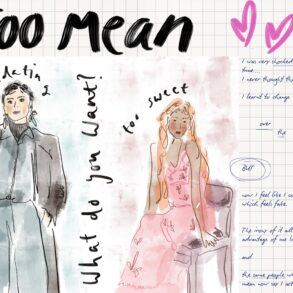 TOO MEAN
dating
What do you want?
too sweet
I was very shocked
I never thought tha
I learnt to change
over
the
BUT
now I feel like I ca
which feels fake.
The irony of it all
advantage of me li
and
the same people w
mean now say I act